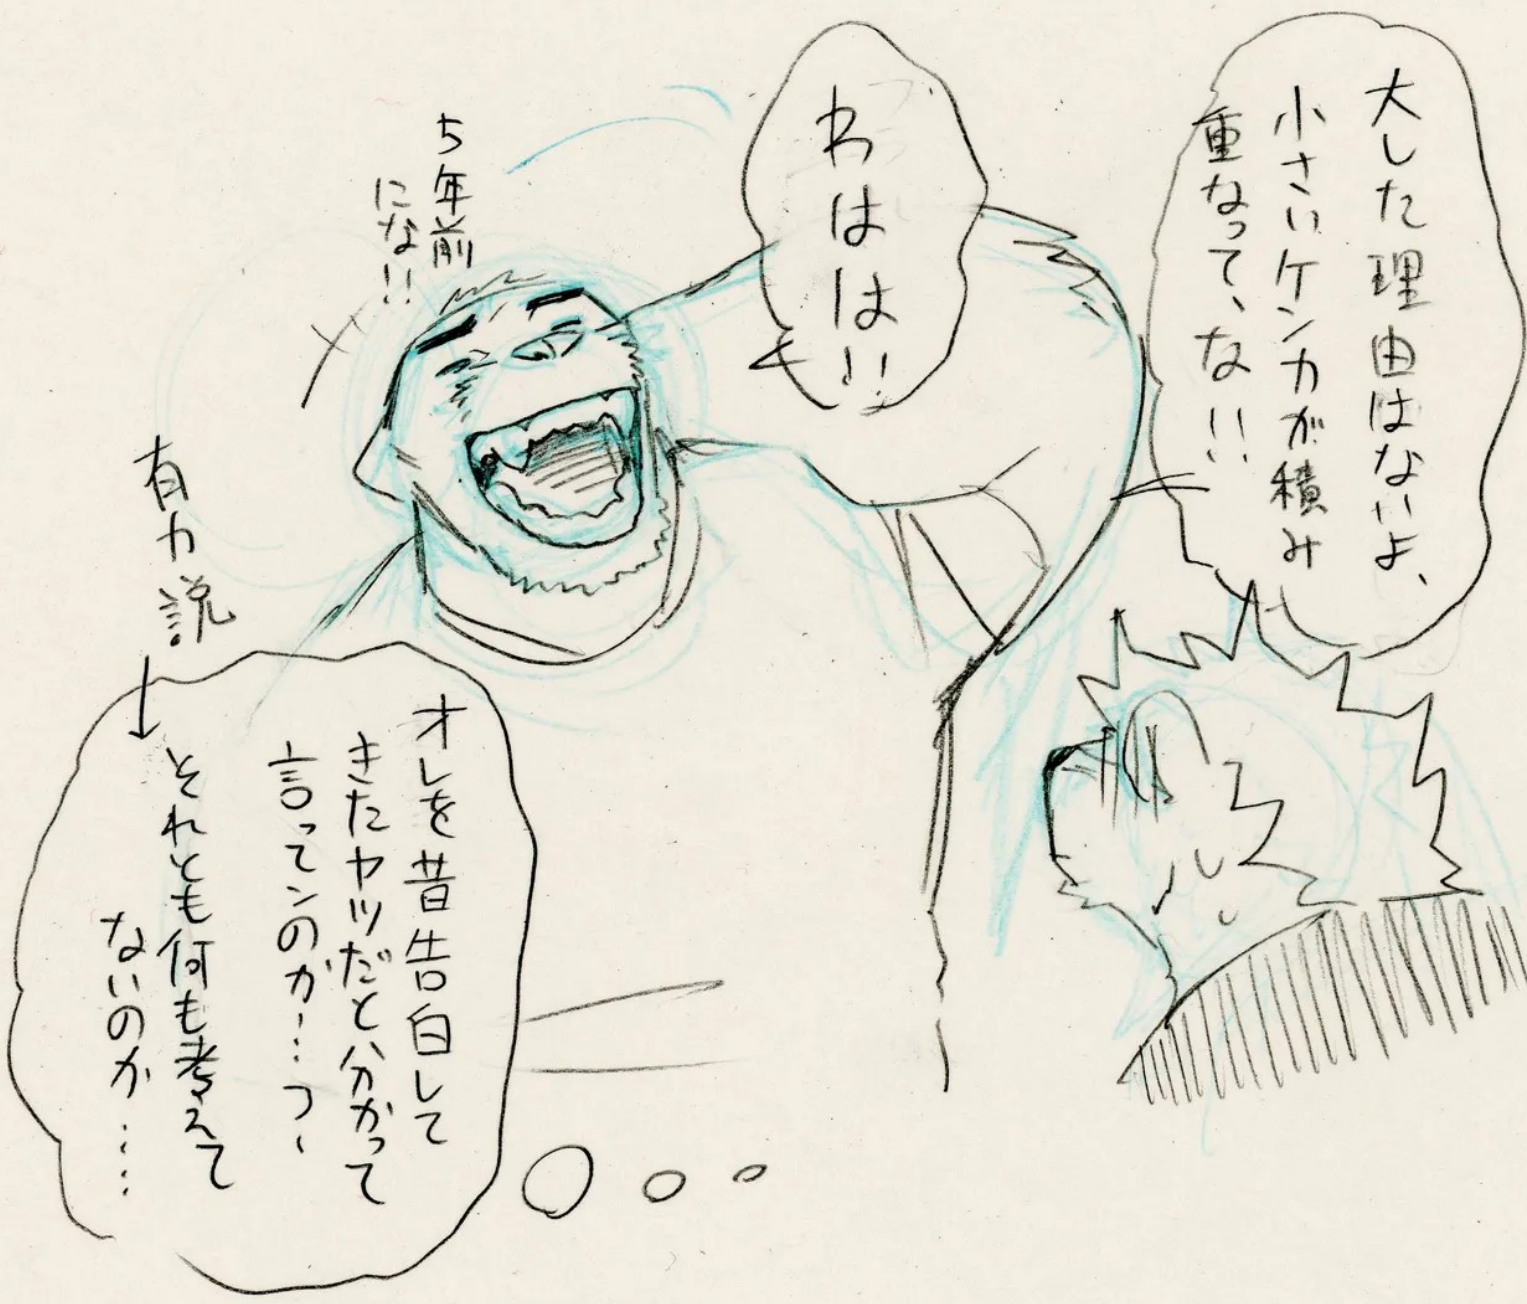 大した理由はないよ、
小さいケンカが積み
重なって、な!!
わはは!!
5年前
にな!!
オレを昔告白して
きたヤツだと分かって
言ってンのか…つ、
それとも何も考えて
ないのか……
有力説